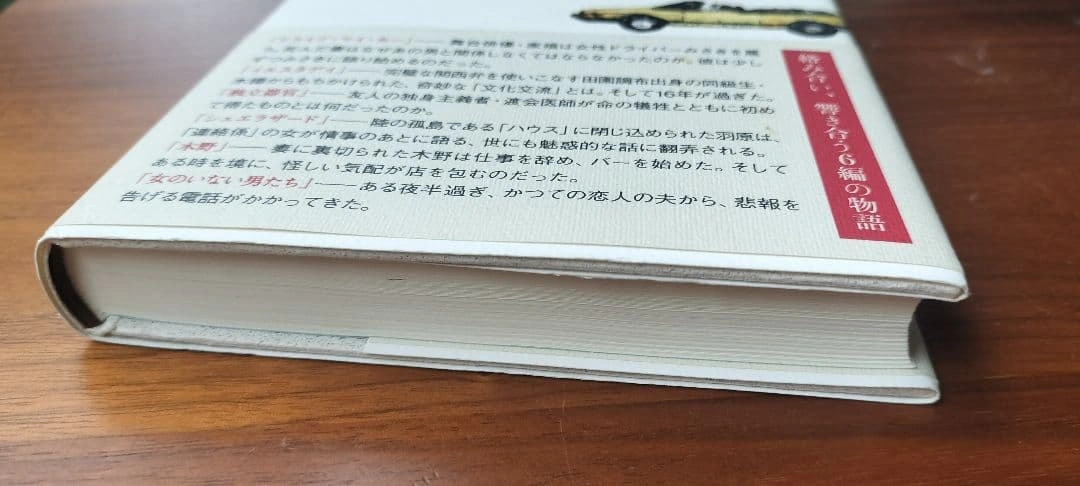 絡み合い、響き合う6編の物語
「ドライブ・マイ・カー」――舞台俳優・家福は女性ドライバーみさきを雇
い、死んだ妻はなぜあの男と関係しなくてはならなかったのか。彼は少し
ずつみさきに語り始めるのだった。
「イエスタデイ」――完璧な関西弁を使いこなす田園調布出身の同級生・
木樽からもちかけられた、奇妙な「文化交流」とは。そして16年が過ぎた。
「独立器官」――友人の独身主義者・渡会医師が命の犠牲とともに初め
て得たものとは何だったのか。
「シェエラザード」――陸の孤島である「ハウス」に閉じ込められた羽原は、
「連絡係」の女が情事のあとに語る、世にも魅惑的な話に翻弄される。
「木野」――妻に裏切られた木野は仕事を辞め、バーを始めた。そして
ある時を境に、怪しい気配が店を包むのだった。
「女のいない男たち」――ある夜半過ぎ、かつての恋人の夫から、悲報を
告げる電話がかかってきた。